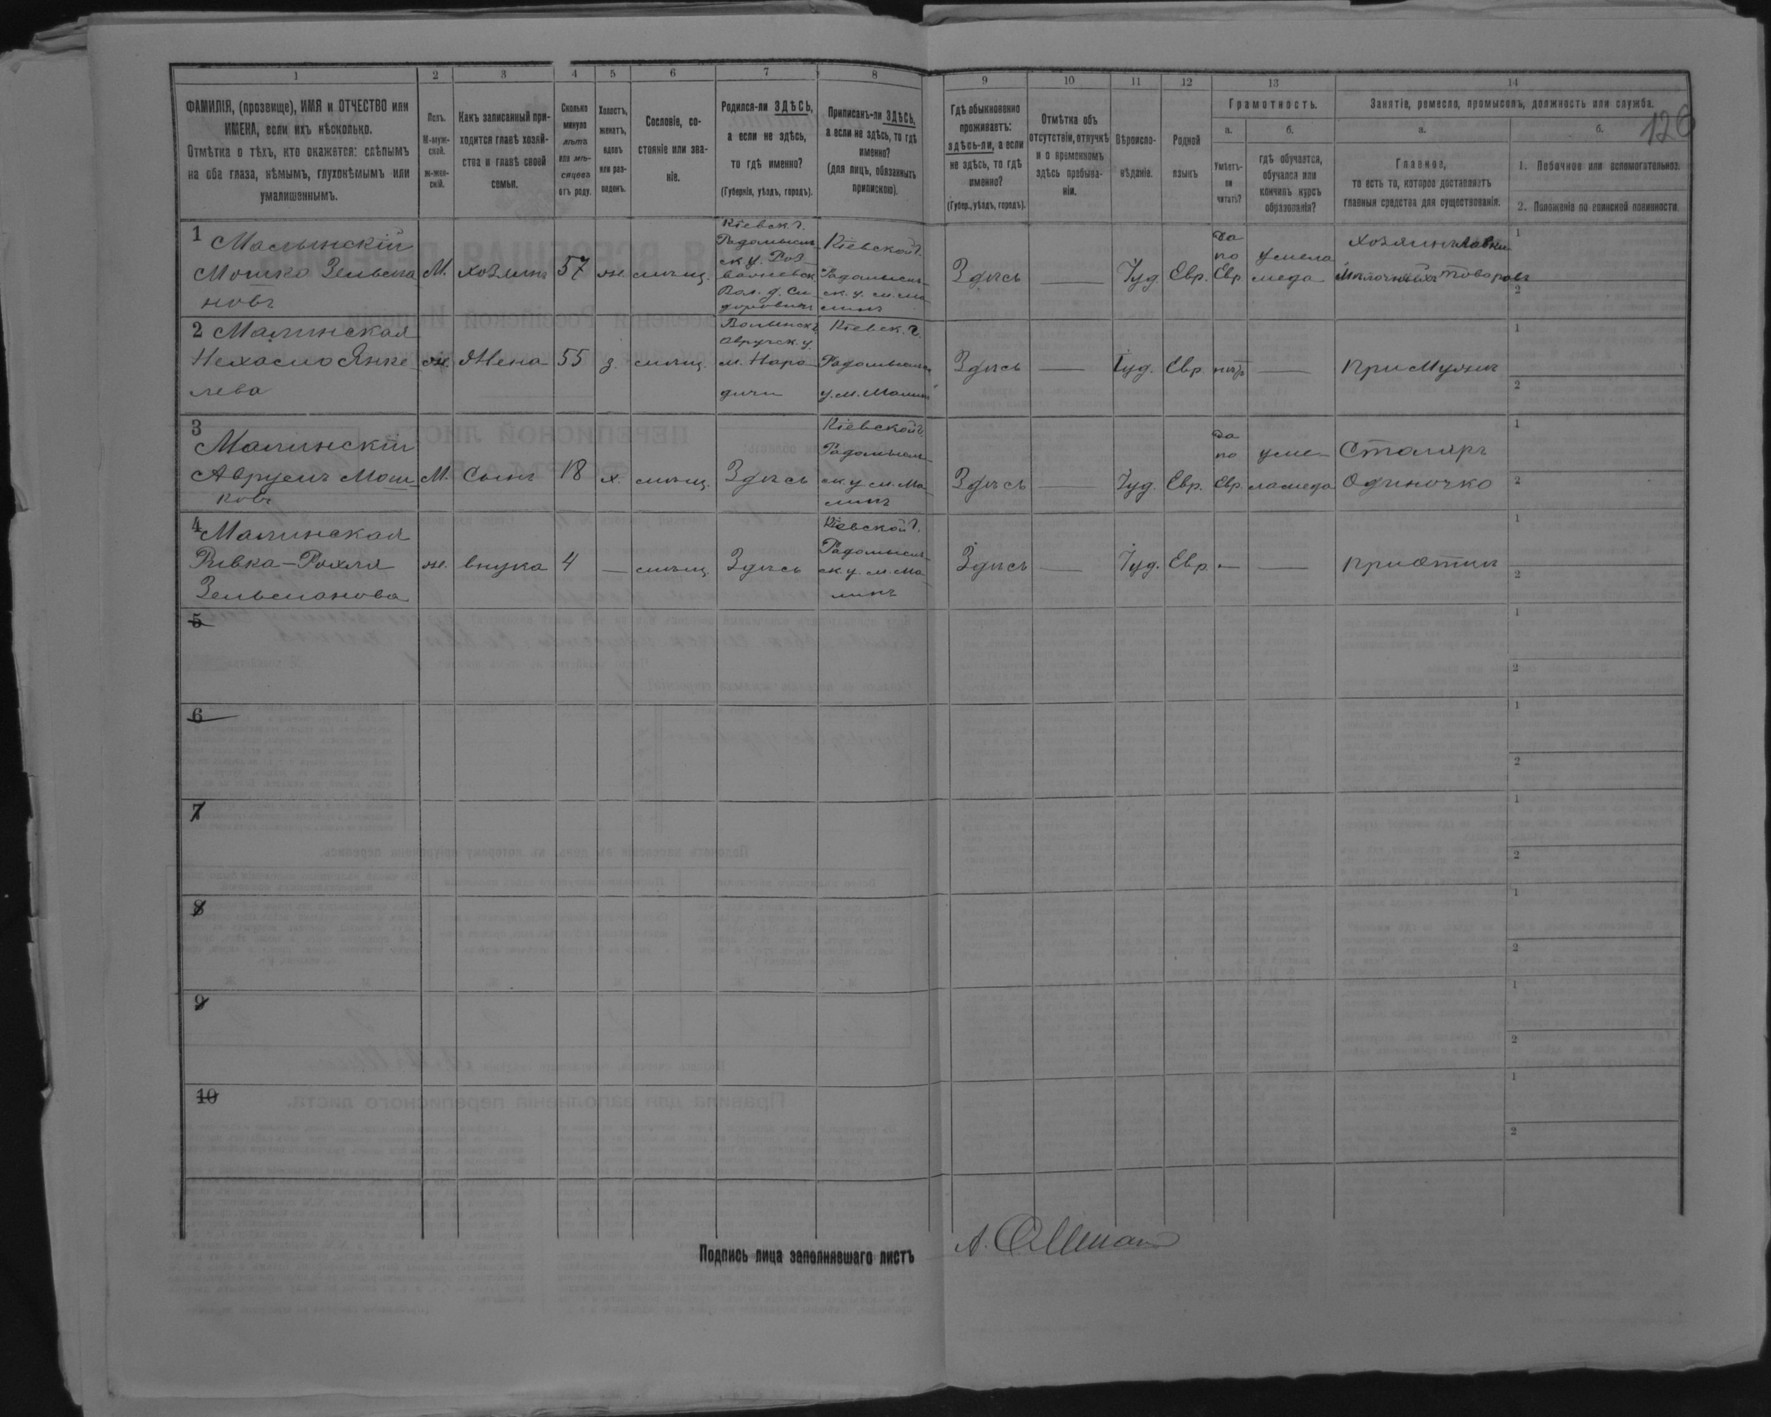 126
1 2 3 4 5 6 7 8 9 10 11 12 13 14
ФАМИЛІЯ, (прозвище), ИМЯ и ОТЧЕСТВО или
ИМЕНА, если ихъ нѣсколько.
Отмѣтка о тѣхъ, кто окажется: слѣпымъ
на оба глаза, нѣмымъ, глухонѣмымъ или
умалишеннымъ.
Полъ.
М-муж-
ской.
Ж-жен-
скій.
Какъ записанный при-
ходится главѣ хозяй-
ства и главѣ своей
семьи.
Сколько
минуло
лѣтъ
или мѣ-
сяцевъ
отъ роду.
Холостъ,
женатъ,
вдовъ
или раз-
веденъ.
Сословіе, со-
стояніе или зва-
ніе.
Родился-ли ЗДѢСЬ,
а если не здѣсь,
то гдѣ именно?
(Губернія, уѣздъ, городъ).
Приписанъ-ли ЗДѢСЬ,
а если не здѣсь, то гдѣ
именно?
(для лицъ, обязанныхъ
припискою).
Гдѣ обыкновенно
проживаетъ:
здѣсь-ли, а если
не здѣсь, то гдѣ
именно?
(Губер., уѣздъ, городъ).
Отмѣтка объ
отсутствіи, отлучкѣ
и о временномъ
здѣсь пребыва-
ніи.
Вѣроиспо-
вѣданіе.
Родной
языкъ
Грамотность.
а.
Умѣетъ-
ли
читать?
б.
гдѣ обучается,
обучался или
кончилъ курсъ
образованія?
Занятіе, ремесло, промыселъ, должность или служба.
а.
Главное,
то есть то, которое доставляетъ
главныя средства для существованія.
б.
1. Побочное или вспомогательное.
2. Положеніе по воинской повинности.
1 Малынскій
Мошко Зельма
новъ
М.
хозяинъ
57
ж.
мѣщ.
Кіевск г.
Радомысль
ск у.
Вол. д. Си
доровичи
Кіевской г.
Радомысль
ск. у. м. Ма
линъ
Здѣсь
—
Іуд.
Евр.
да
по
Евр
у мела
меда
хозяинъ лавки
мѣлочныхъ товаровъ
1
2
2 Малинская
Нехасмо Янке
лева
ж.
Жена
55
з.
мѣщ.
Волынск г.
Овручск. у.
м. Наро
дичи
Кіевск. г.
Радомысль
у. м. Малинъ
Здѣсь
—
Іуд.
Евр
нѣтъ
—
при мужѣ
1
2
3
Малинскій
Аврумъ Мош
ковъ
М.
Сынъ
18
х.
мѣщ.
Здѣсь
Кіевской г.
Радомысль
ск у м. Ма
линъ
Здѣсь
—
Іуд.
Евр.
да
по
Евр
у ме
ламеда
Столяръ
Одиночко
1
2
4 Малинская
Ривка-Рохля
Зельманова
ж.
внука
4
—
мѣщ
Здѣсь
Кіевской г.
Радомысль
ск. у. м. Ма
линъ
Здѣсь
—
Іуд.
Евр
—
—
при отцѣ
1
2
5
1
2
6
1
2
7
1
2
8
1
2
9
1
2
10
1
2
Подпись лица заполнявшаго листъ